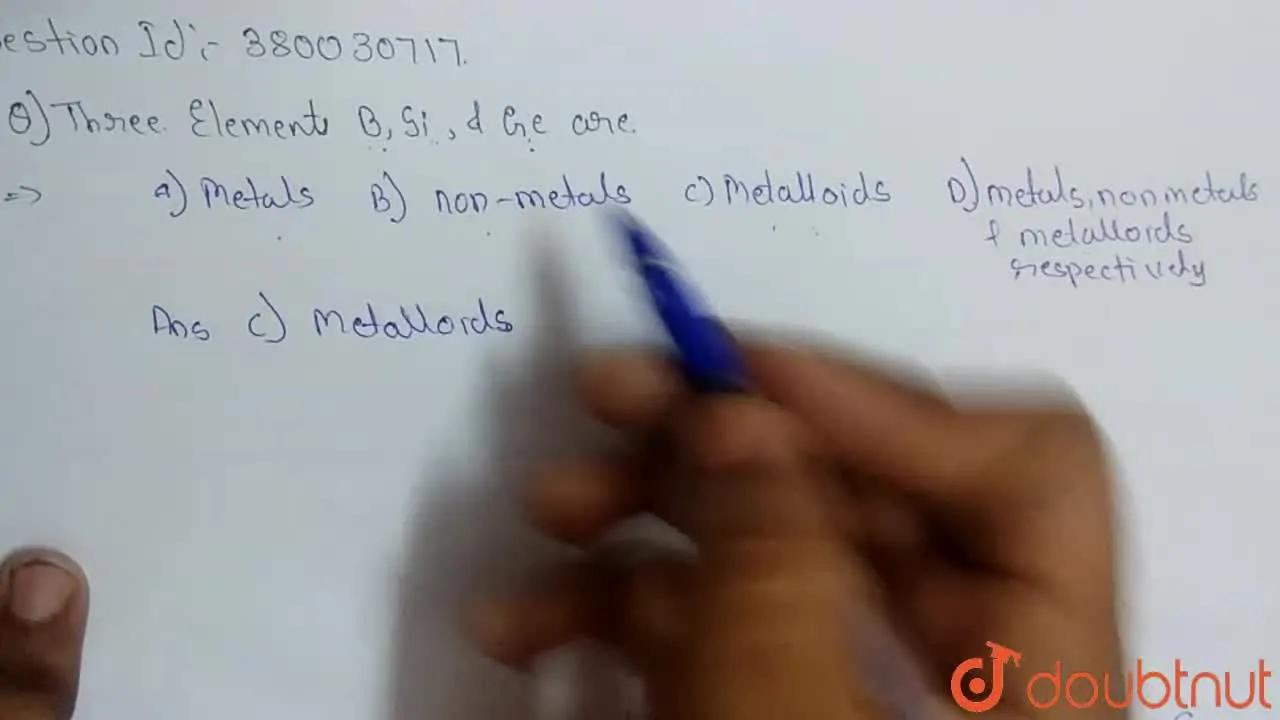 estion Id:- 380030717.
Q) Three Elements B, Si, & Ge are.
=> a) Metals B) non-metals C) Metalloids D) metals, nonmetals
& metalloids
respectively
Ans C) Metalloids
doubtnut